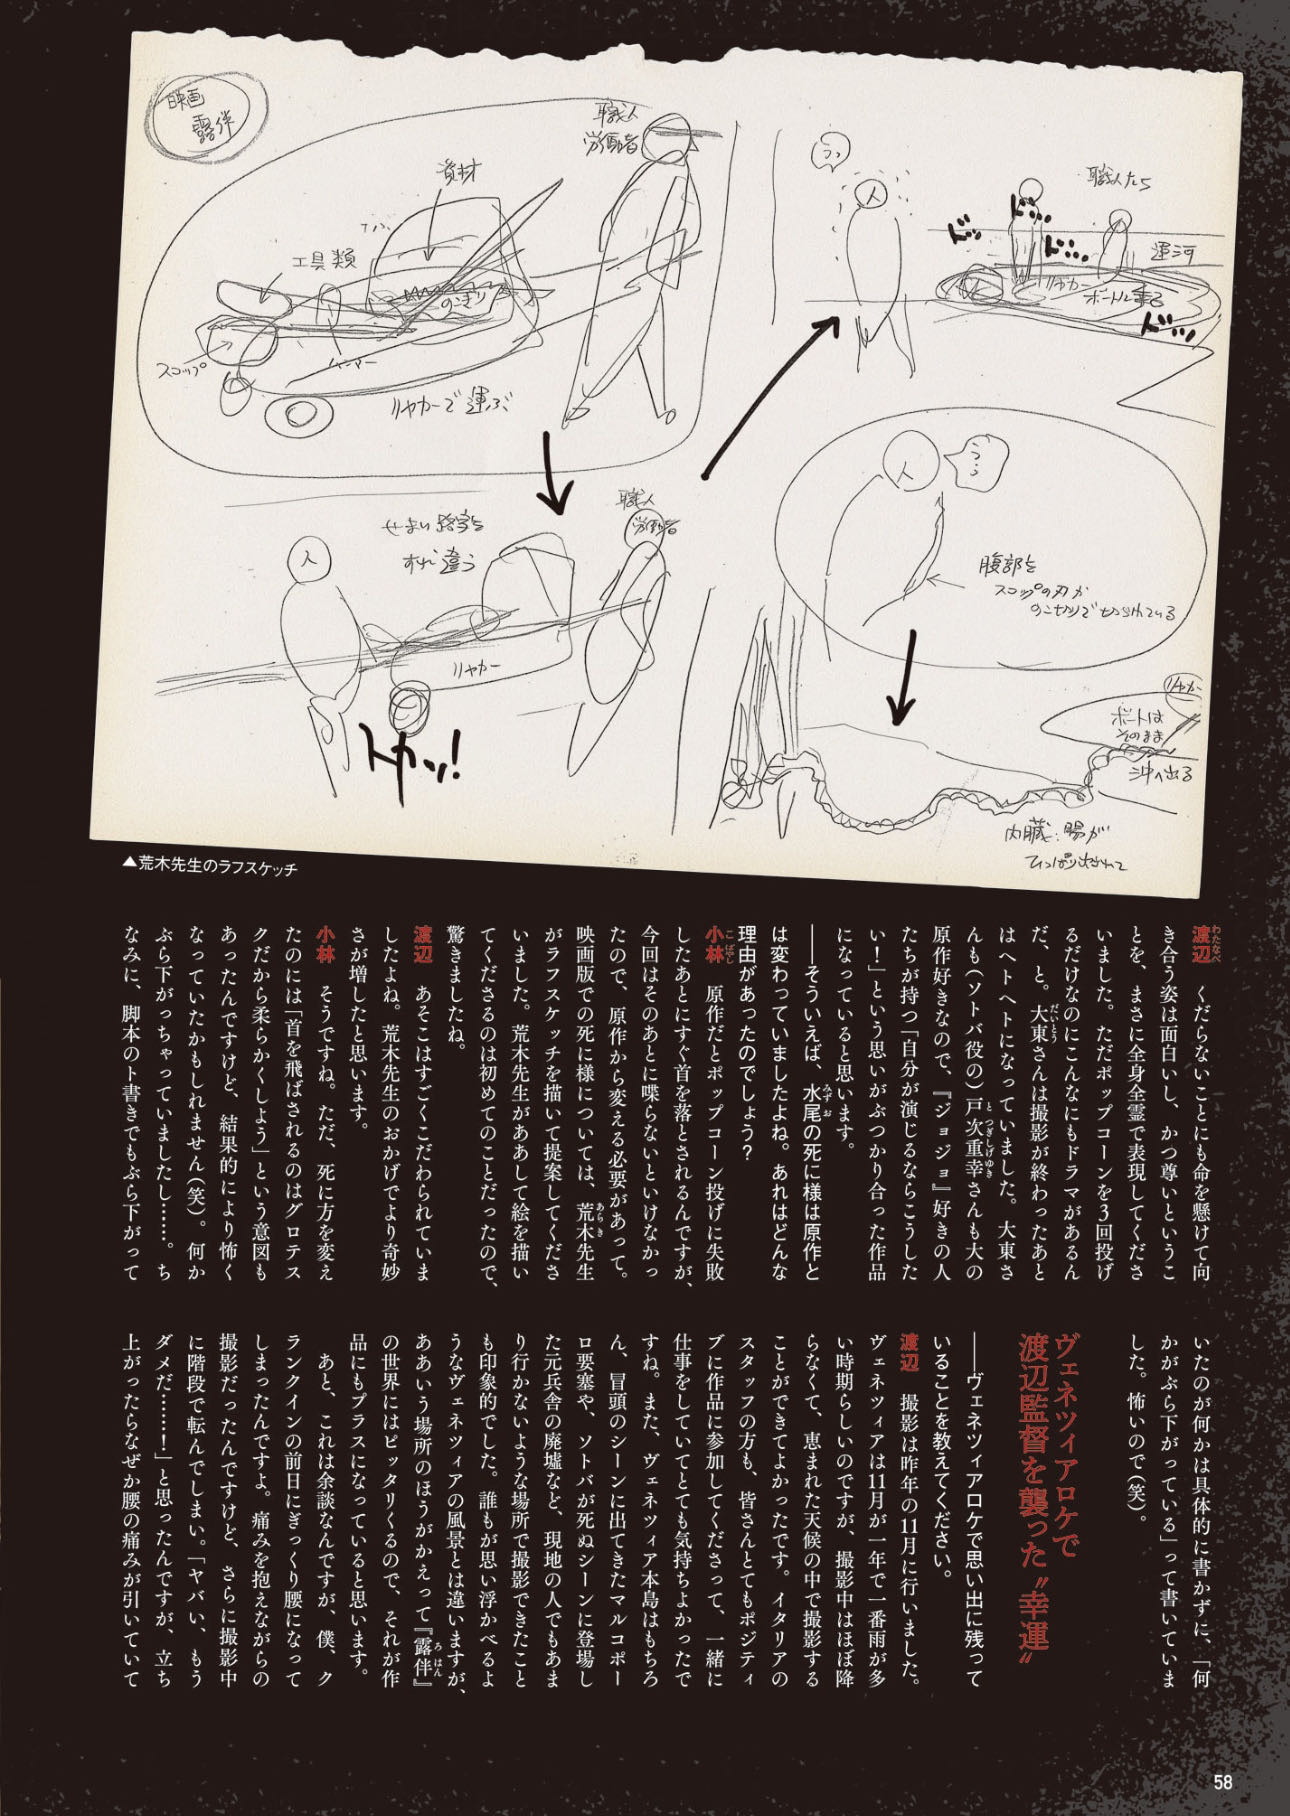 映画
露伴
職人
労働者
資材
工具類
のこぎり
スコップ
ハンマー
リヤカーで運ぶ
せまい路字を
すれ違う
職人
労働者
人
リヤカー
ドカッ!
うっ
人
職人たち
ドッ
ドド…
ドド…
運河
リヤカー
ボートに乗る
ドドッ
人
う…
腹部を
スコップの刃か
のこぎりで切られている
リヤカー
ボートは
そのまま
沖へ出る
内臓:腸が
ひっぱり出されて
▲荒木先生のラフスケッチ
渡辺 くだらないことにも命を懸けて向
き合う姿は面白いし、かつ尊いというこ
とを、まさに全身全霊で表現してくださ
いました。ただポップコーンを3回投げ
るだけなのにこんなにもドラマがあるん
だ、と。大東さんは撮影が終わったあと
はヘトヘトになっていました。大東さ
んも(ソトバ役の)戸次重幸さんも大の
原作好きなので、『ジョジョ』好きの人
たちが持つ「自分が演じるならこうした
い!」という思いがぶつかり合った作品
になっていると思います。
――そういえば、水尾の死に様は原作と
は変わっていましたよね。あれはどんな
理由があったのでしょう?
小林 原作だとポップコーン投げに失敗
したあとにすぐ首を落とされるんですが、
今回はそのあとに喋らないといけなかっ
たので、原作から変える必要があって。
映画版での死に様については、荒木先生
がラフスケッチを描いて提案してくださ
いました。荒木先生がああして絵を描い
てくださるのは初めてのことだったので、
驚きましたね。
渡辺 あそこはすごくこだわられていま
したよね。荒木先生のおかげでより奇妙
さが増したと思います。
小林 そうですね。ただ、死に方を変え
たのには「首を飛ばされるのはグロテス
クだから柔らかくしよう」という意図も
あったんですけど、結果的により怖く
なっていたかもしれません(笑)。何か
ぶら下がっちゃっていましたし……。ち
なみに、脚本のト書きでもぶら下がって
いたのが何かは具体的に書かずに、「何
かがぶら下がっている」って書いていま
した。怖いので(笑)。
ヴェネツィアロケで
渡辺監督を襲った〝幸運〟
――ヴェネツィアロケで思い出に残って
いることを教えてください。
渡辺 撮影は昨年の11月に行いました。
ヴェネツィアは11月が一年で一番雨が多
い時期らしいのですが、撮影中はほぼ降
らなくて、恵まれた天候の中で撮影する
ことができてよかったです。イタリアの
スタッフの方も、皆さんとてもポジティ
ブに作品に参加してくださって、一緒に
仕事をしていてとても気持ちよかったで
すね。また、ヴェネツィア本島はもちろ
ん、冒頭のシーンに出てきたマルコポー
ロ要塞や、ソトバが死ぬシーンに登場し
た元兵舎の廃墟など、現地の人でもあま
り行かないような場所で撮影できたこと
も印象的でした。誰もが思い浮かべるよ
うなヴェネツィアの風景とは違いますが、
ああいう場所のほうがかえって『露伴』
の世界にはピッタリくるので、それが作
品にもプラスになっていると思います。
あと、これは余談なんですが、僕、ク
ランクインの前日にぎっくり腰になって
しまったんですよ。痛みを抱えながらの
撮影だったんですけど、さらに撮影中
に階段で転んでしまい。「ヤバい、もう
ダメだ……!」と思ったんですが、立ち
上がったらなぜか腰の痛みが引いていて
58